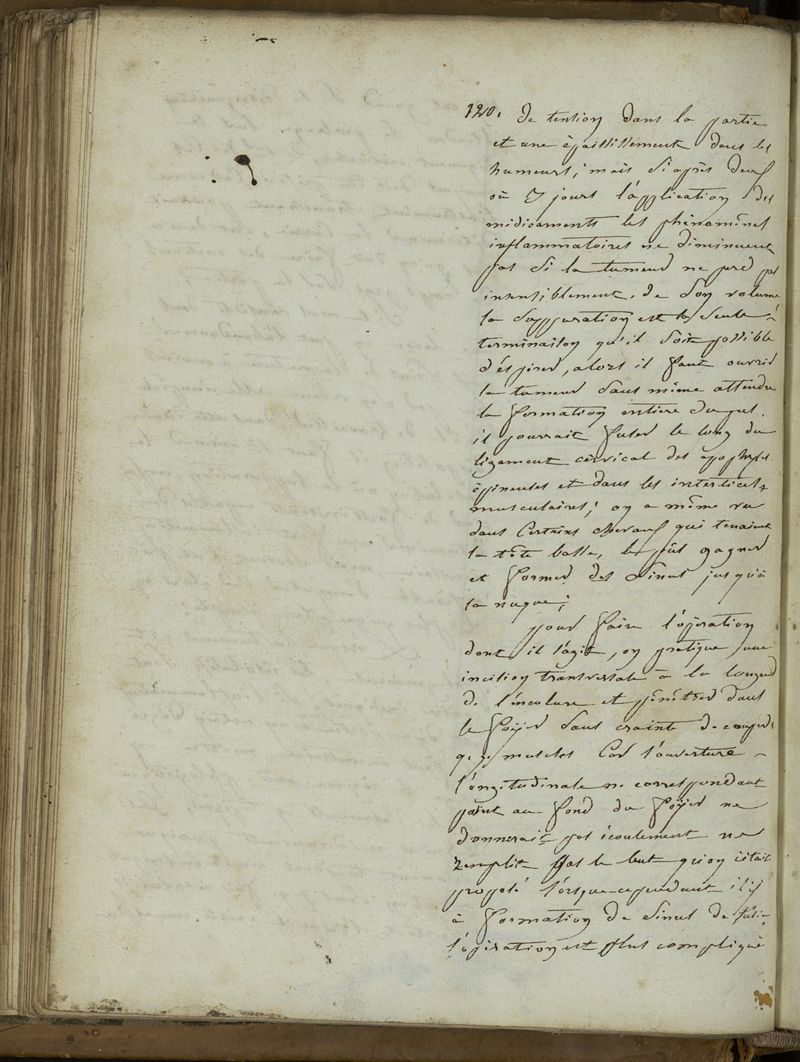 120. de tention dans la partie
et une épaississement dans les
humeurs, mais si après deux
où 7 jours l'application des
médicaments les phénomênes
inflammatoires ne diminuent
pas si la tumeur ne perd pas
insensiblement de son volume
la suppuration est la seule
terminaison qu'il soit possible
d'éspérer, alors il faut ouvrir
la tumeur sans même attendre
la formation entiere du pus.
il pourrait fuser le long du
ligament cérvical des apophyses
épineuses et dans les interstices
musculaires; on a même vu
dans certains chevaux qui tenaient
la tête basse, le pus gagner
et former des sinus jusqu'à
la nuque;
pour faire l'opération
dont il s'agit, on pratique une
incition transversale à la longueur
de l'encolure et pénétrer dans
le foÿer sans crainte de couper
qq musclés car l'ouverture
longitudinale ne correspondant
point au fond du foÿer ne
donnerait pas écoulement ne
remplit pas le but qu'on s'était
proposé lorsque cependant il y
à formation de sinus de
l'opération est plus compliqué